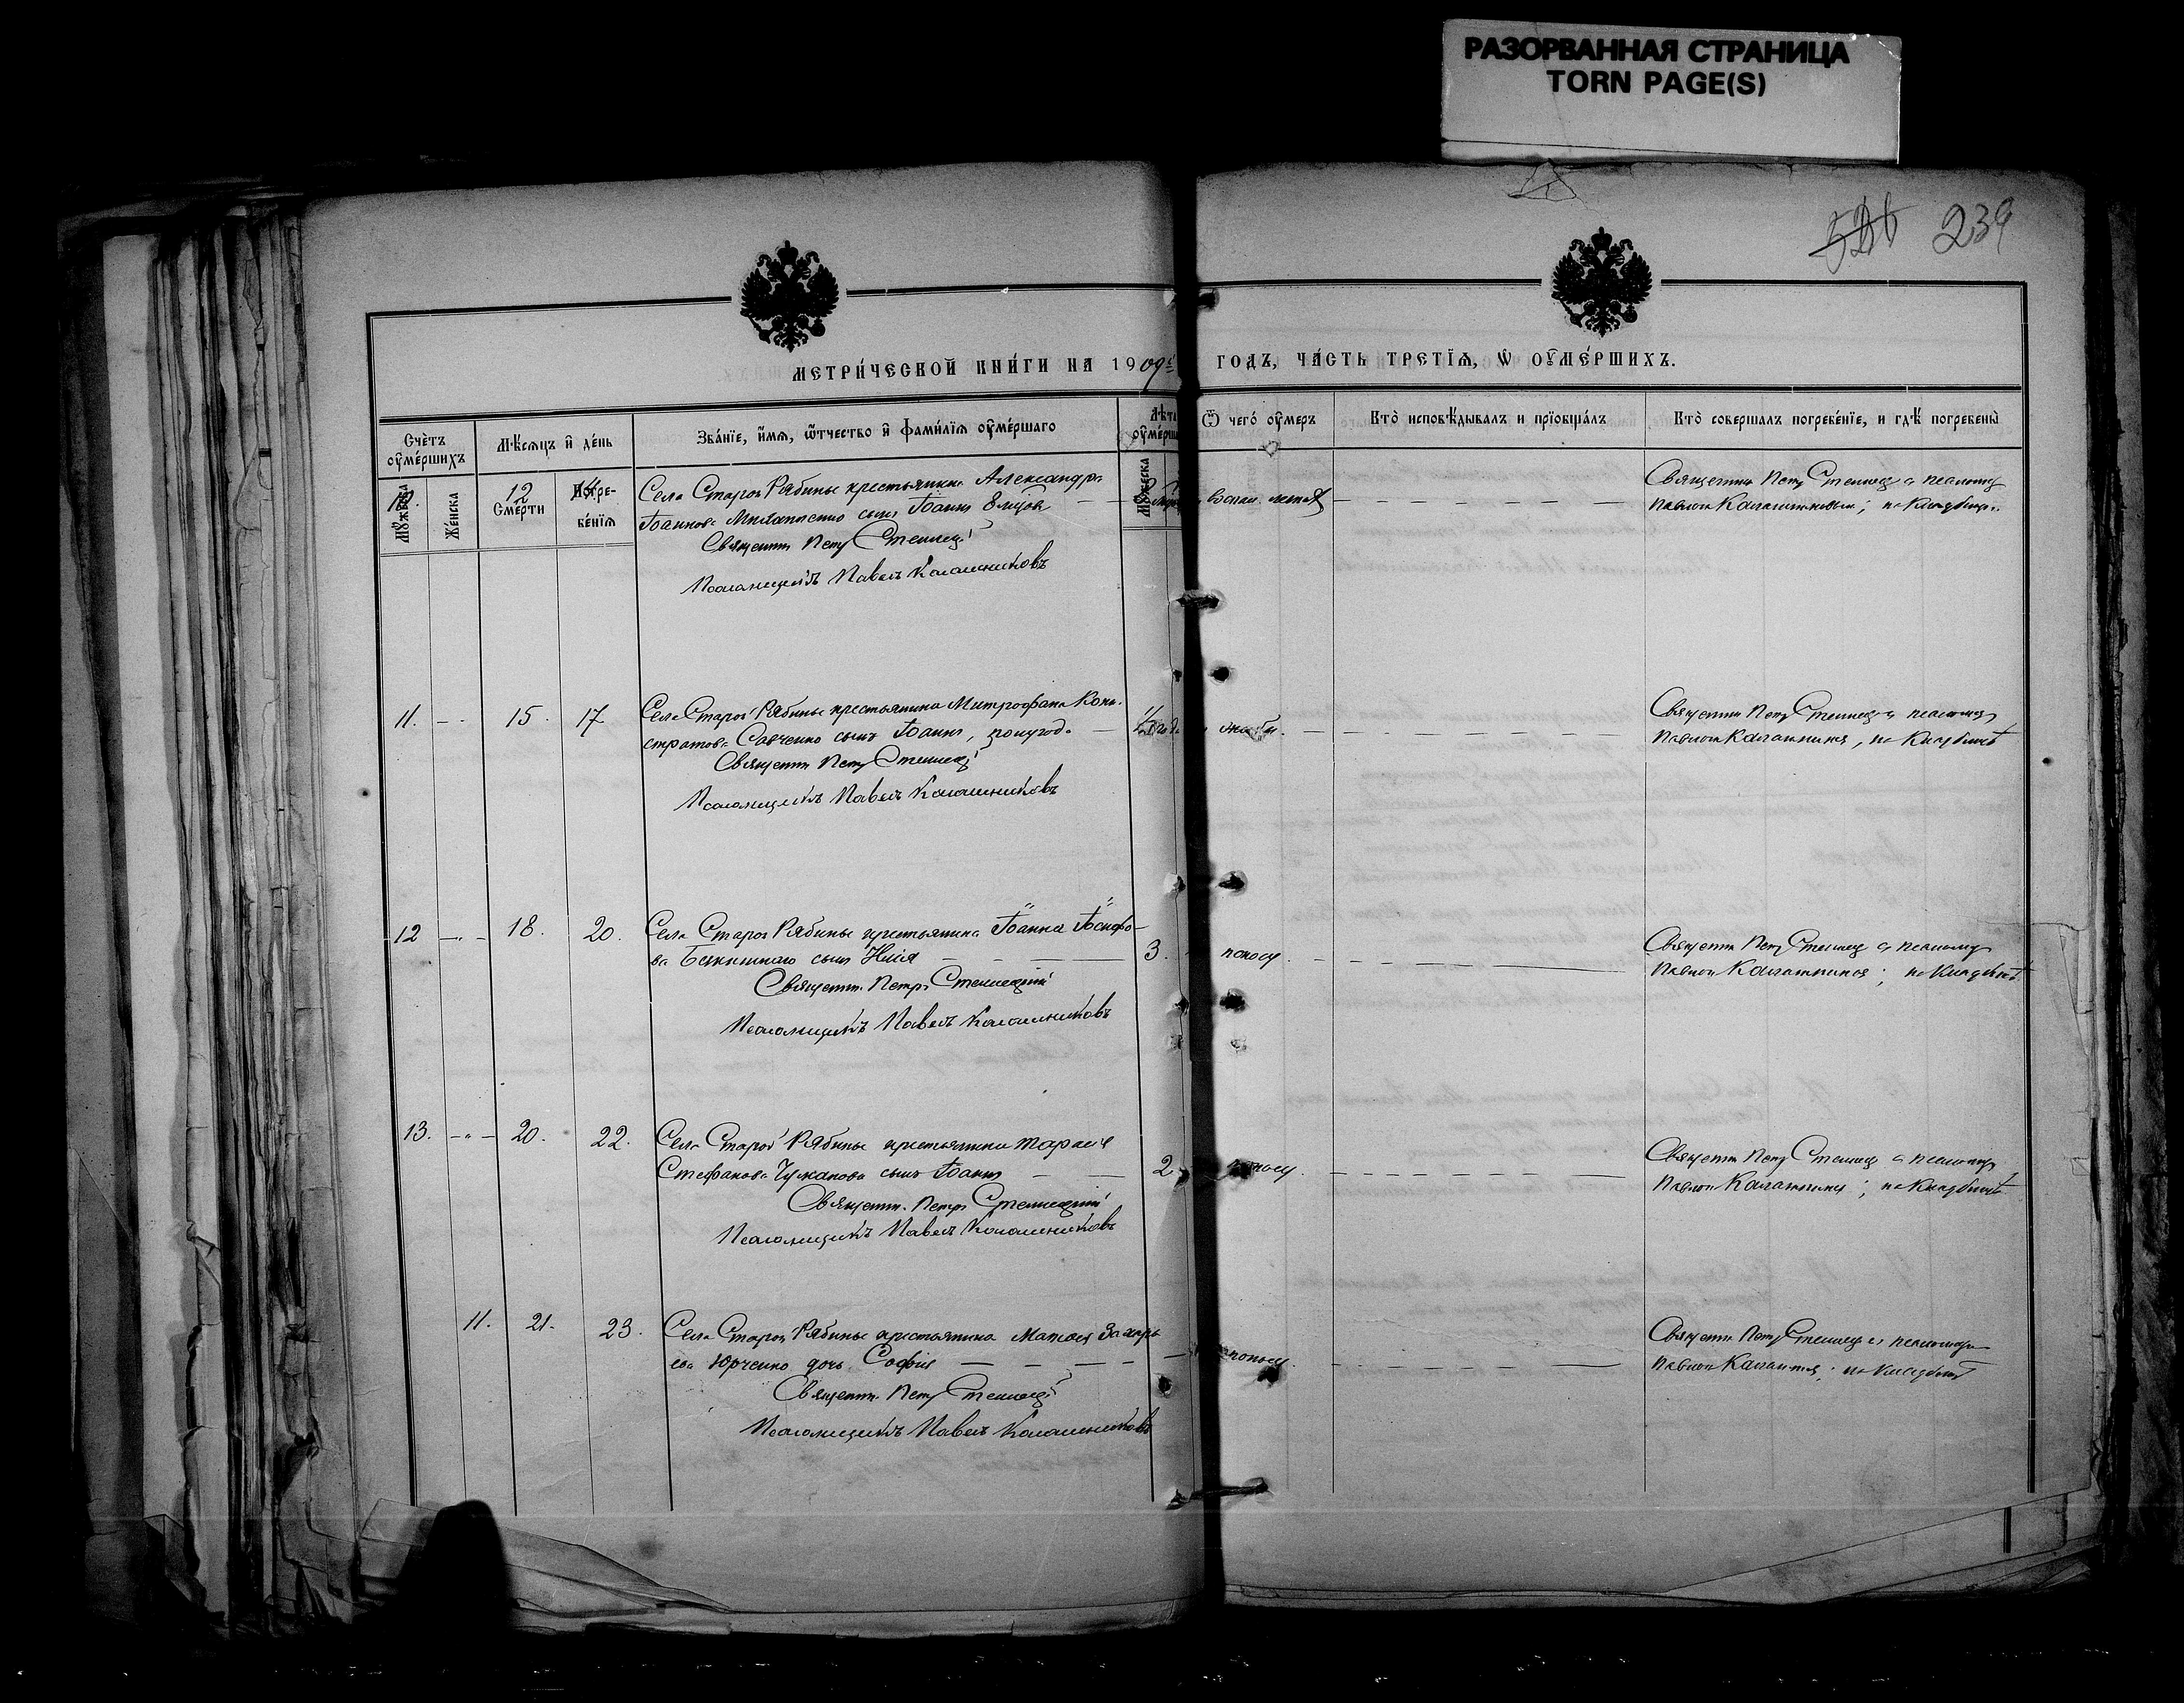 РАЗОРВАННАЯ СТРАНИЦА
TORN PAGE(S)
239
МЕТРИ́ЧЕСКОЙ КНИ́ГИ НА 1909й ГОДЪ, ЧА́СТЬ ТРЕТЇѦ, Ѡ҆ ОУ҆МЕ́РШИХЪ.
Счѐтъ оу҆ме́ршихъ
Мѣсѧцъ и҆ де́нь
Зва́нїе, и҆́мѧ, ѻ҆́тчество и҆ фами́лїѧ оу҆ме́ршаго
Лѣта оу҆ме́рша
Ѿ чегѡ́ оу҆́меръ
Кто̀ исповѣ́дывалъ и прїобща́лъ
Кто̀ совершалъ погребе́нїе, и гдѣ̀ погребены̀
Мꙋ́жеска
Же́нска
Сме́рти
Погре-бе́нїѧ
Мꙋ́жеска
10. 12 14 Села Старой Рябины крестьянина Александра
Іоаннова сынъ Іоаннъ 8 мѣсов
Священникъ Петръ Стеллецкій
Псаломщикъ Павелъ Калашниковъ
Священник Петр Стеллец с псаломщ
Павлом Калашниковым; на кладбищѣ.
11. - - 15. 17 Села Старой Рябины крестьянина Митрофана
Савченко сынъ Іоаннъ, полугод.
Священникъ Петръ Стеллецкій
Псаломщикъ Павелъ Калашниковъ
Священник Петр Стеллец с псаломщ
Павлом Калашников, на кладбищѣ
12 -"- 18. 20. Села Старой Рябины крестьянина Іоанна Іосифо-
ва сынъ Илія 3. поносу.
Священн. Петръ Стеллецкій
Псаломщикъ Павелъ Калашниковъ
Священник Петр Стеллец с псаломщ
Павлом Калашников; на кладбищѣ
13. -"- 20. 22. Села Старой Рябины крестьянина Тарасія
Стефанова Чужанова сынъ Іоаннъ 2 поносу.
Священн. Петръ Стеллецкій
Псаломщикъ Павелъ Калашниковъ
Священник Петр Стеллец с псаломщ
Павлом Калашников; на кладбищѣ
11. 21. 23. Села Старой Рябины крестьянина Матѳея Захарь
ева Юрченко дочь Софія поносу.
Священн. Петръ Стеллецкій
Псаломщикъ Павелъ Калашниковъ
Священник Петр Стеллец с псаломщ
Павлом Калашников; на кладбищѣ